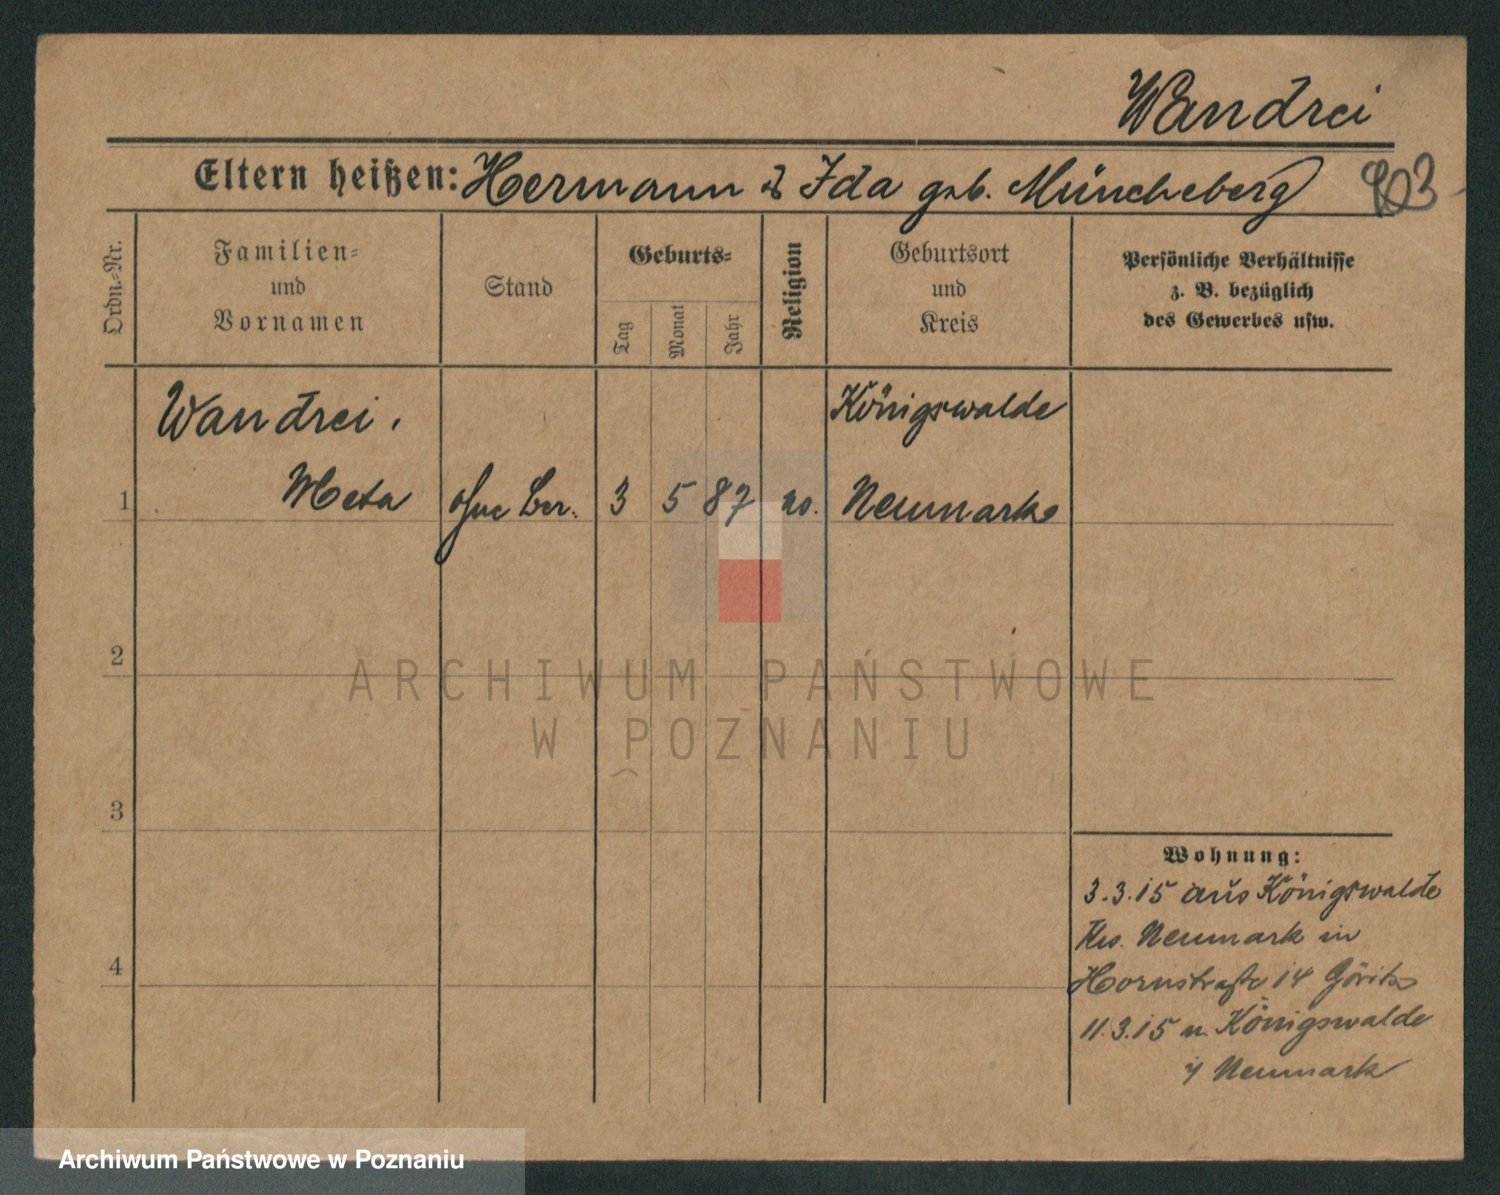 Wandrei
Eltern heißen: Hermann & Ida geb. Müncheberg
903
Ordn.-Nr.
Familien-
und
Vornamen
Stand
Geburts-
Tag
Monat
Jahr
Religion
Geburtsort
und
Kreis
Persönliche Verhältnisse
z. B. bezüglich
des Gewerbes usw.
Wandrei.
Königswalde
1 Meta ohne Ber. 3 5 87 Neumark
2
ARCHIWUM PAŃSTWOWE
W POZNANIU
3
Wohnung:
3.3.15 aus Königswalde
Neumark in
4
Hornstraße 14 Göritz
11.3.15 n. Königswalde
Neumark
Archiwum Państwowe w Poznaniu